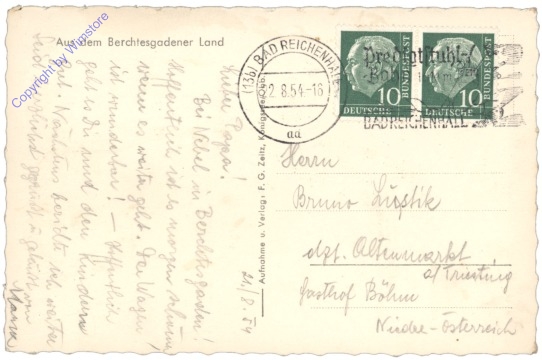 Aus dem Berchtesgadener Land
Copyright by Wumstore
Lieber Pappa!
Bei Nebel in Berchtesgaden!
Hoffentlich ist es morgen schöner,
wenn es weiter geht. Der Wagen
ist wunderbar! – Hoffentlich
geht es Dir und den Kindern
gut. Nächstens bericht ich weiter
Seid herzlichst gegrüßt u. geküßt von
Mama
21./8.54
Aufnahme u. Verlag: F. G. Zeitz, Königssee/Obb.
(13b) BAD REICHENHALL
2.8.54-16
aa
Predigtstuhl-
BAD REICHENHALL
10
DEUTSCHE
BUNDESPOST
10
DEUTSCHE
BUNDESPOST
Herrn
Bruno
dzt. Altenmarkt
a/Triesting
Gasthof Böhm
Nieder-Österreich